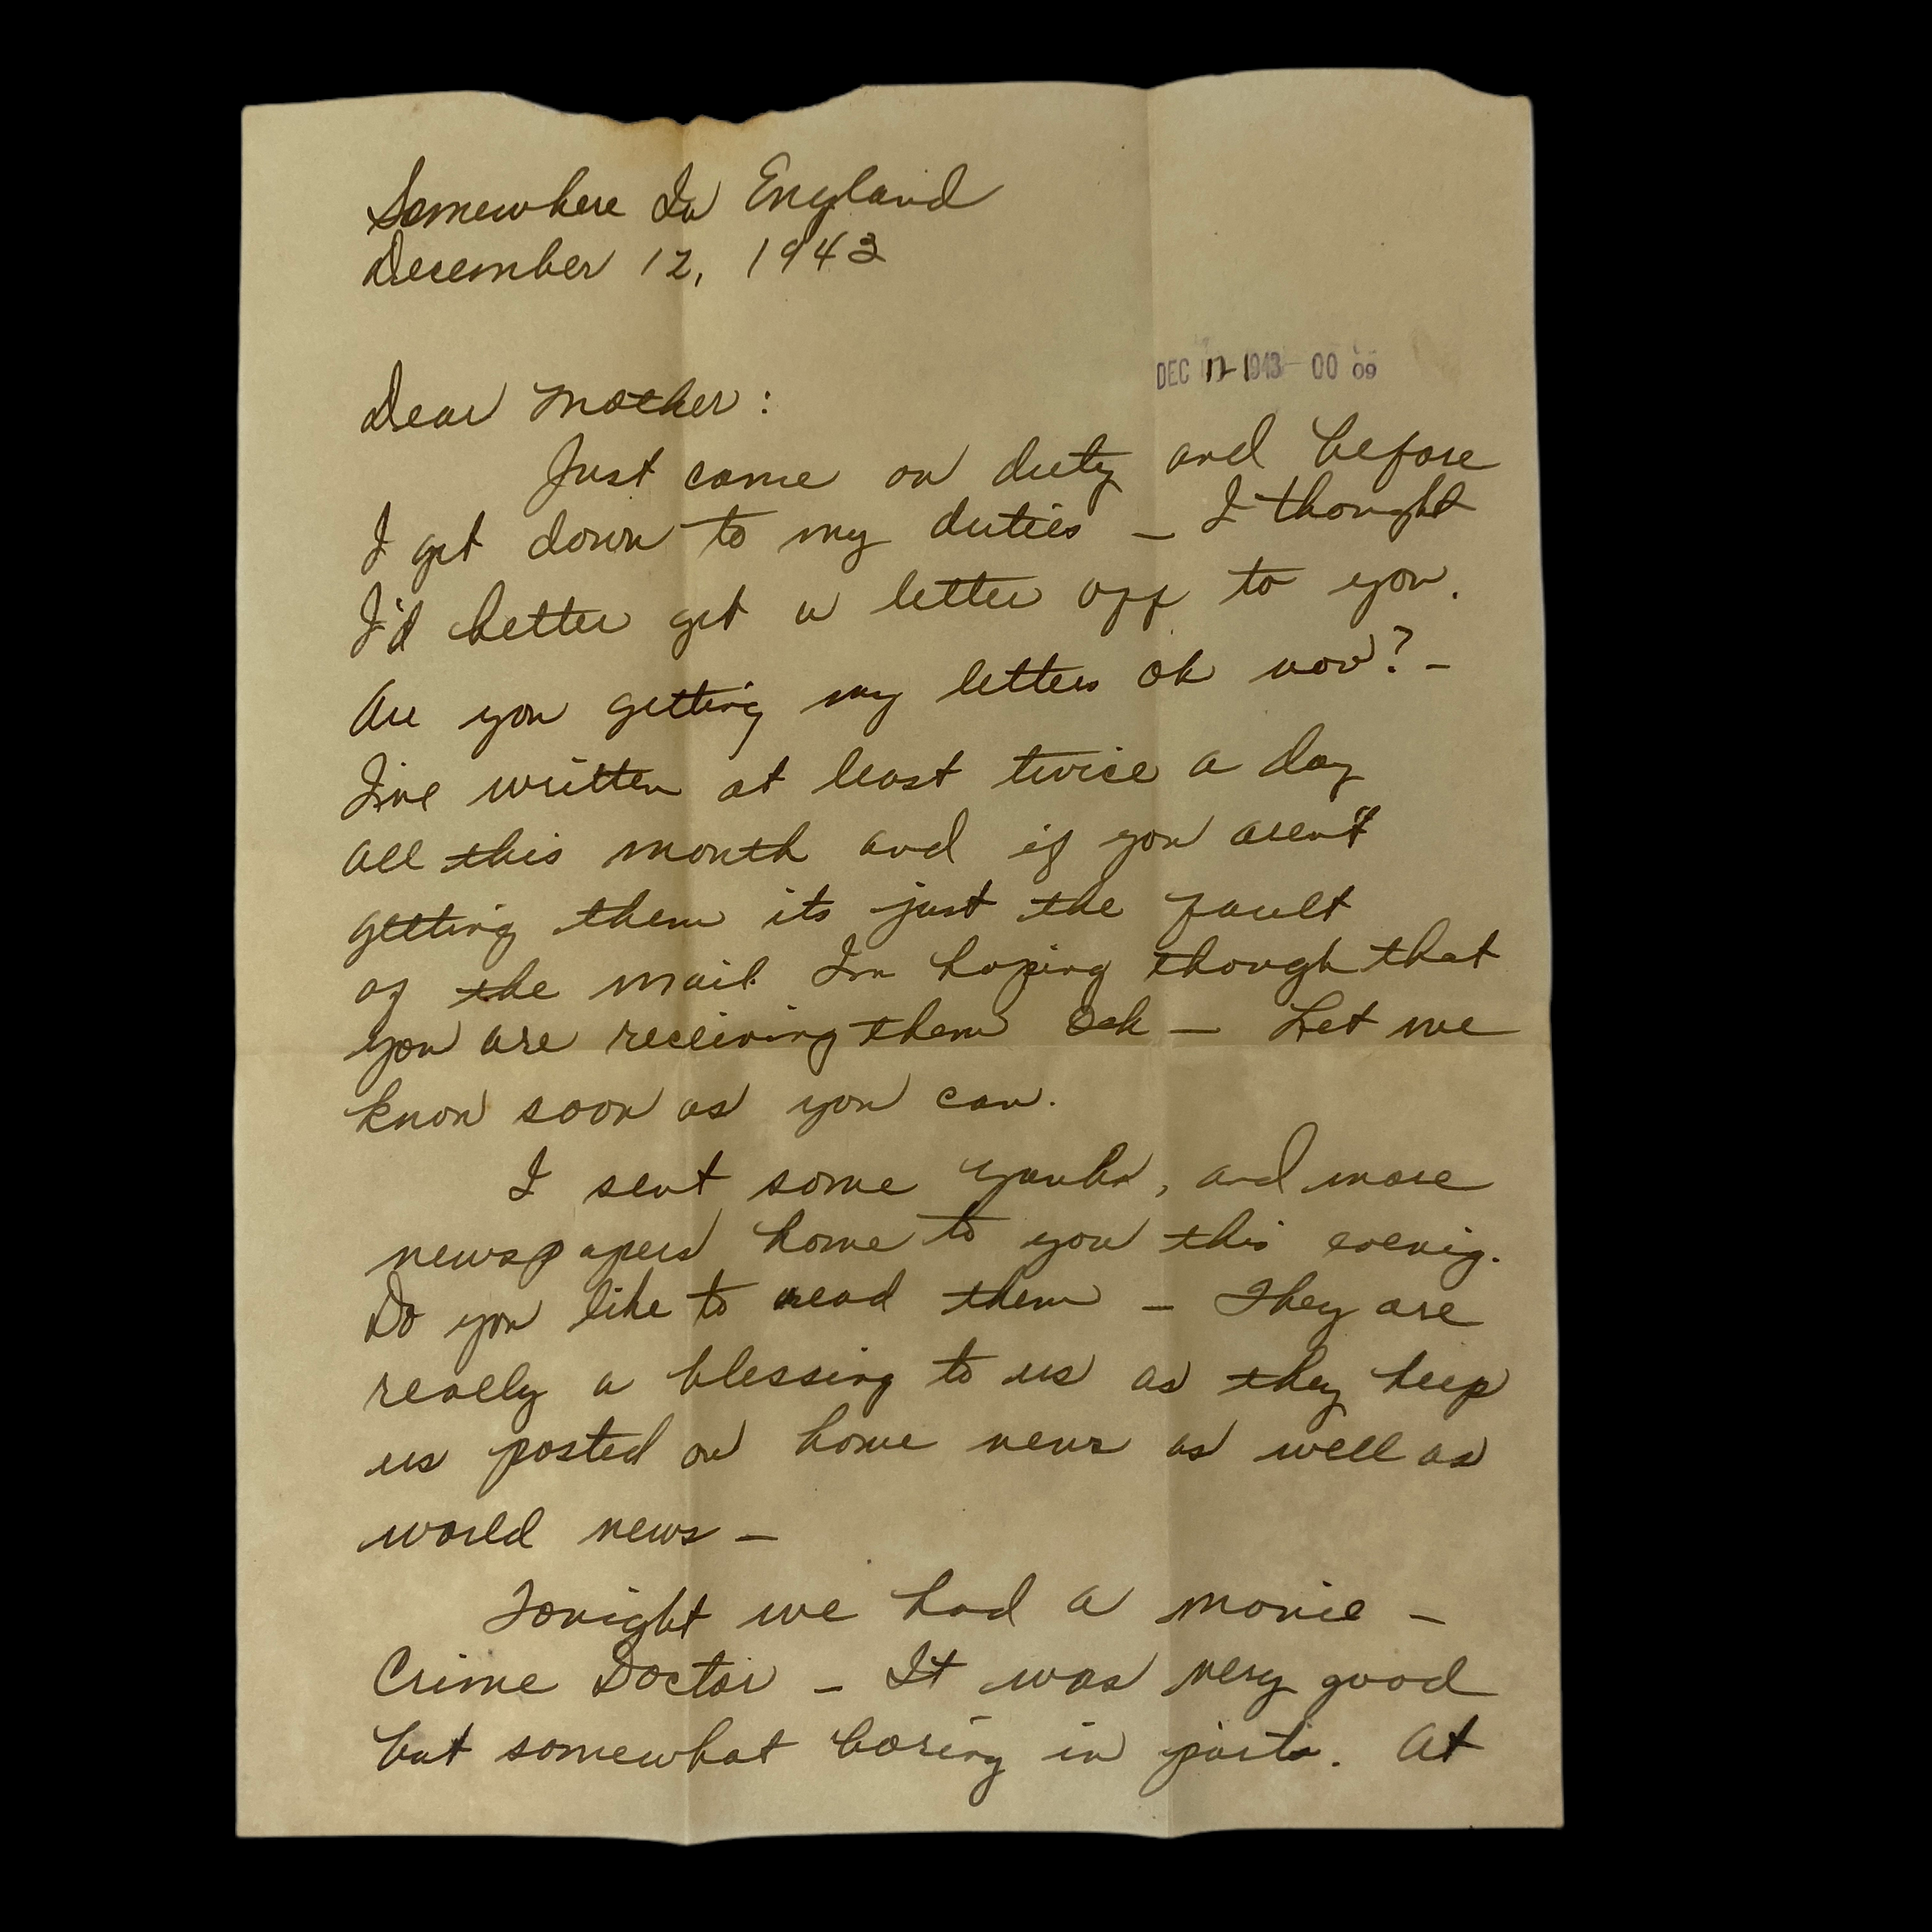 Somewhere In England
December 12, 1943
DEC 17 1943 00 09
Dear Mother:
Just came on duty and before
I get down to my duties – I thought
I'd better get a letter off to you.
Are you getting my letters ok now? –
I've written at least twice a day
all this month and if you aren't
getting them its just the fault
of the mail. Im hoping though that
you are receiving them ok – Let me
know soon as you can.
I sent some Yanks, and more
newspapers home to you this evenig.
Do you like to read them – They are
really a blessing to us as they keep
us posted on home news as well as
world news –
Tonight we had a movie –
Crime Doctor – It was very good
but somewhat boring in parts. At